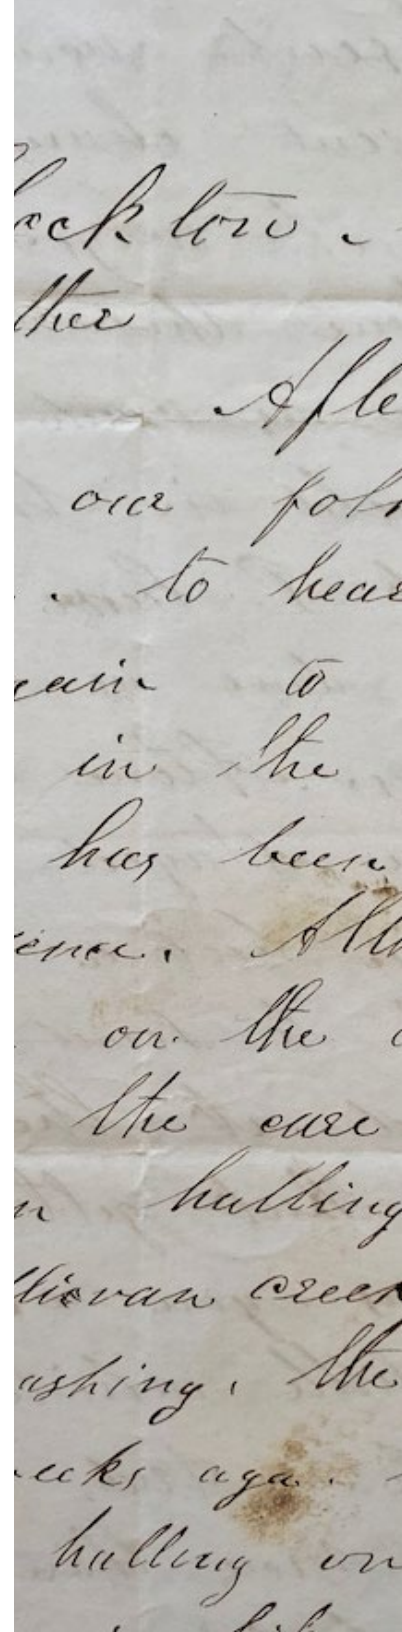 lackton.
ther
Afte
our folk
to hear
gain to
in the
has been
ence. Alth
on the
the care
n hulling
llivan creek
ashing. the
eeks aga.
hulling on